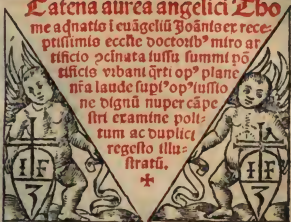 Catena aurea angelici Tho
me aq̃natis ĩ euãgeliũ Joãnis ex rece-
ptissimis eccl̃ie doctorib⁹ miro ar
tificio ↄcinata iussu summi põ
tificis vrbani q̃rti op⁹ plane
nr̃a laude supi⁹ op⁹ iussio
ne dignũ nuper cãpe
stri examine poli-
tum ac duplici
regesto illu-
stratũ.
✠
I F
3
I F
3